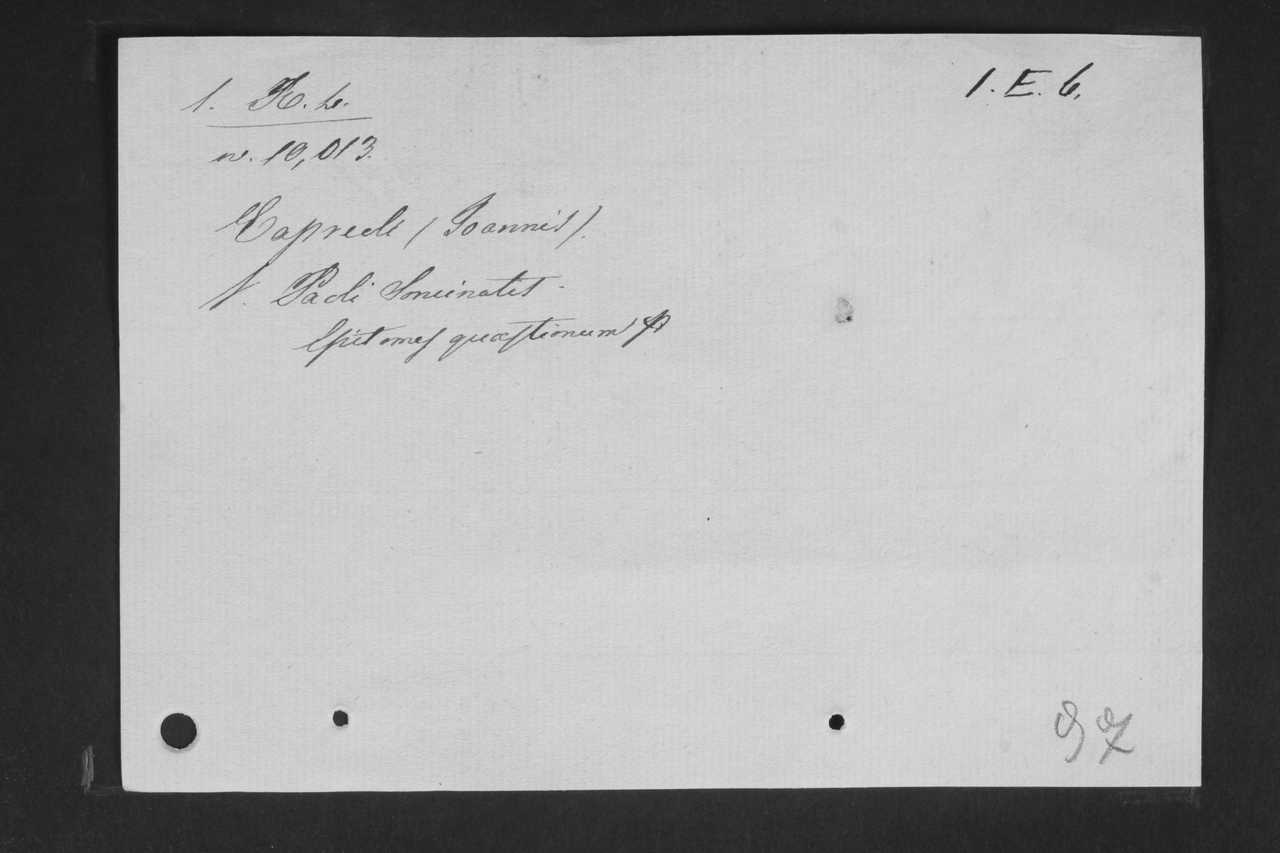 1. K. L.
n. 10,013.
1. E. 6.
Capreoli (Joannis).
v. Pauli Soncinatis.
Epitomes quæstionum
97